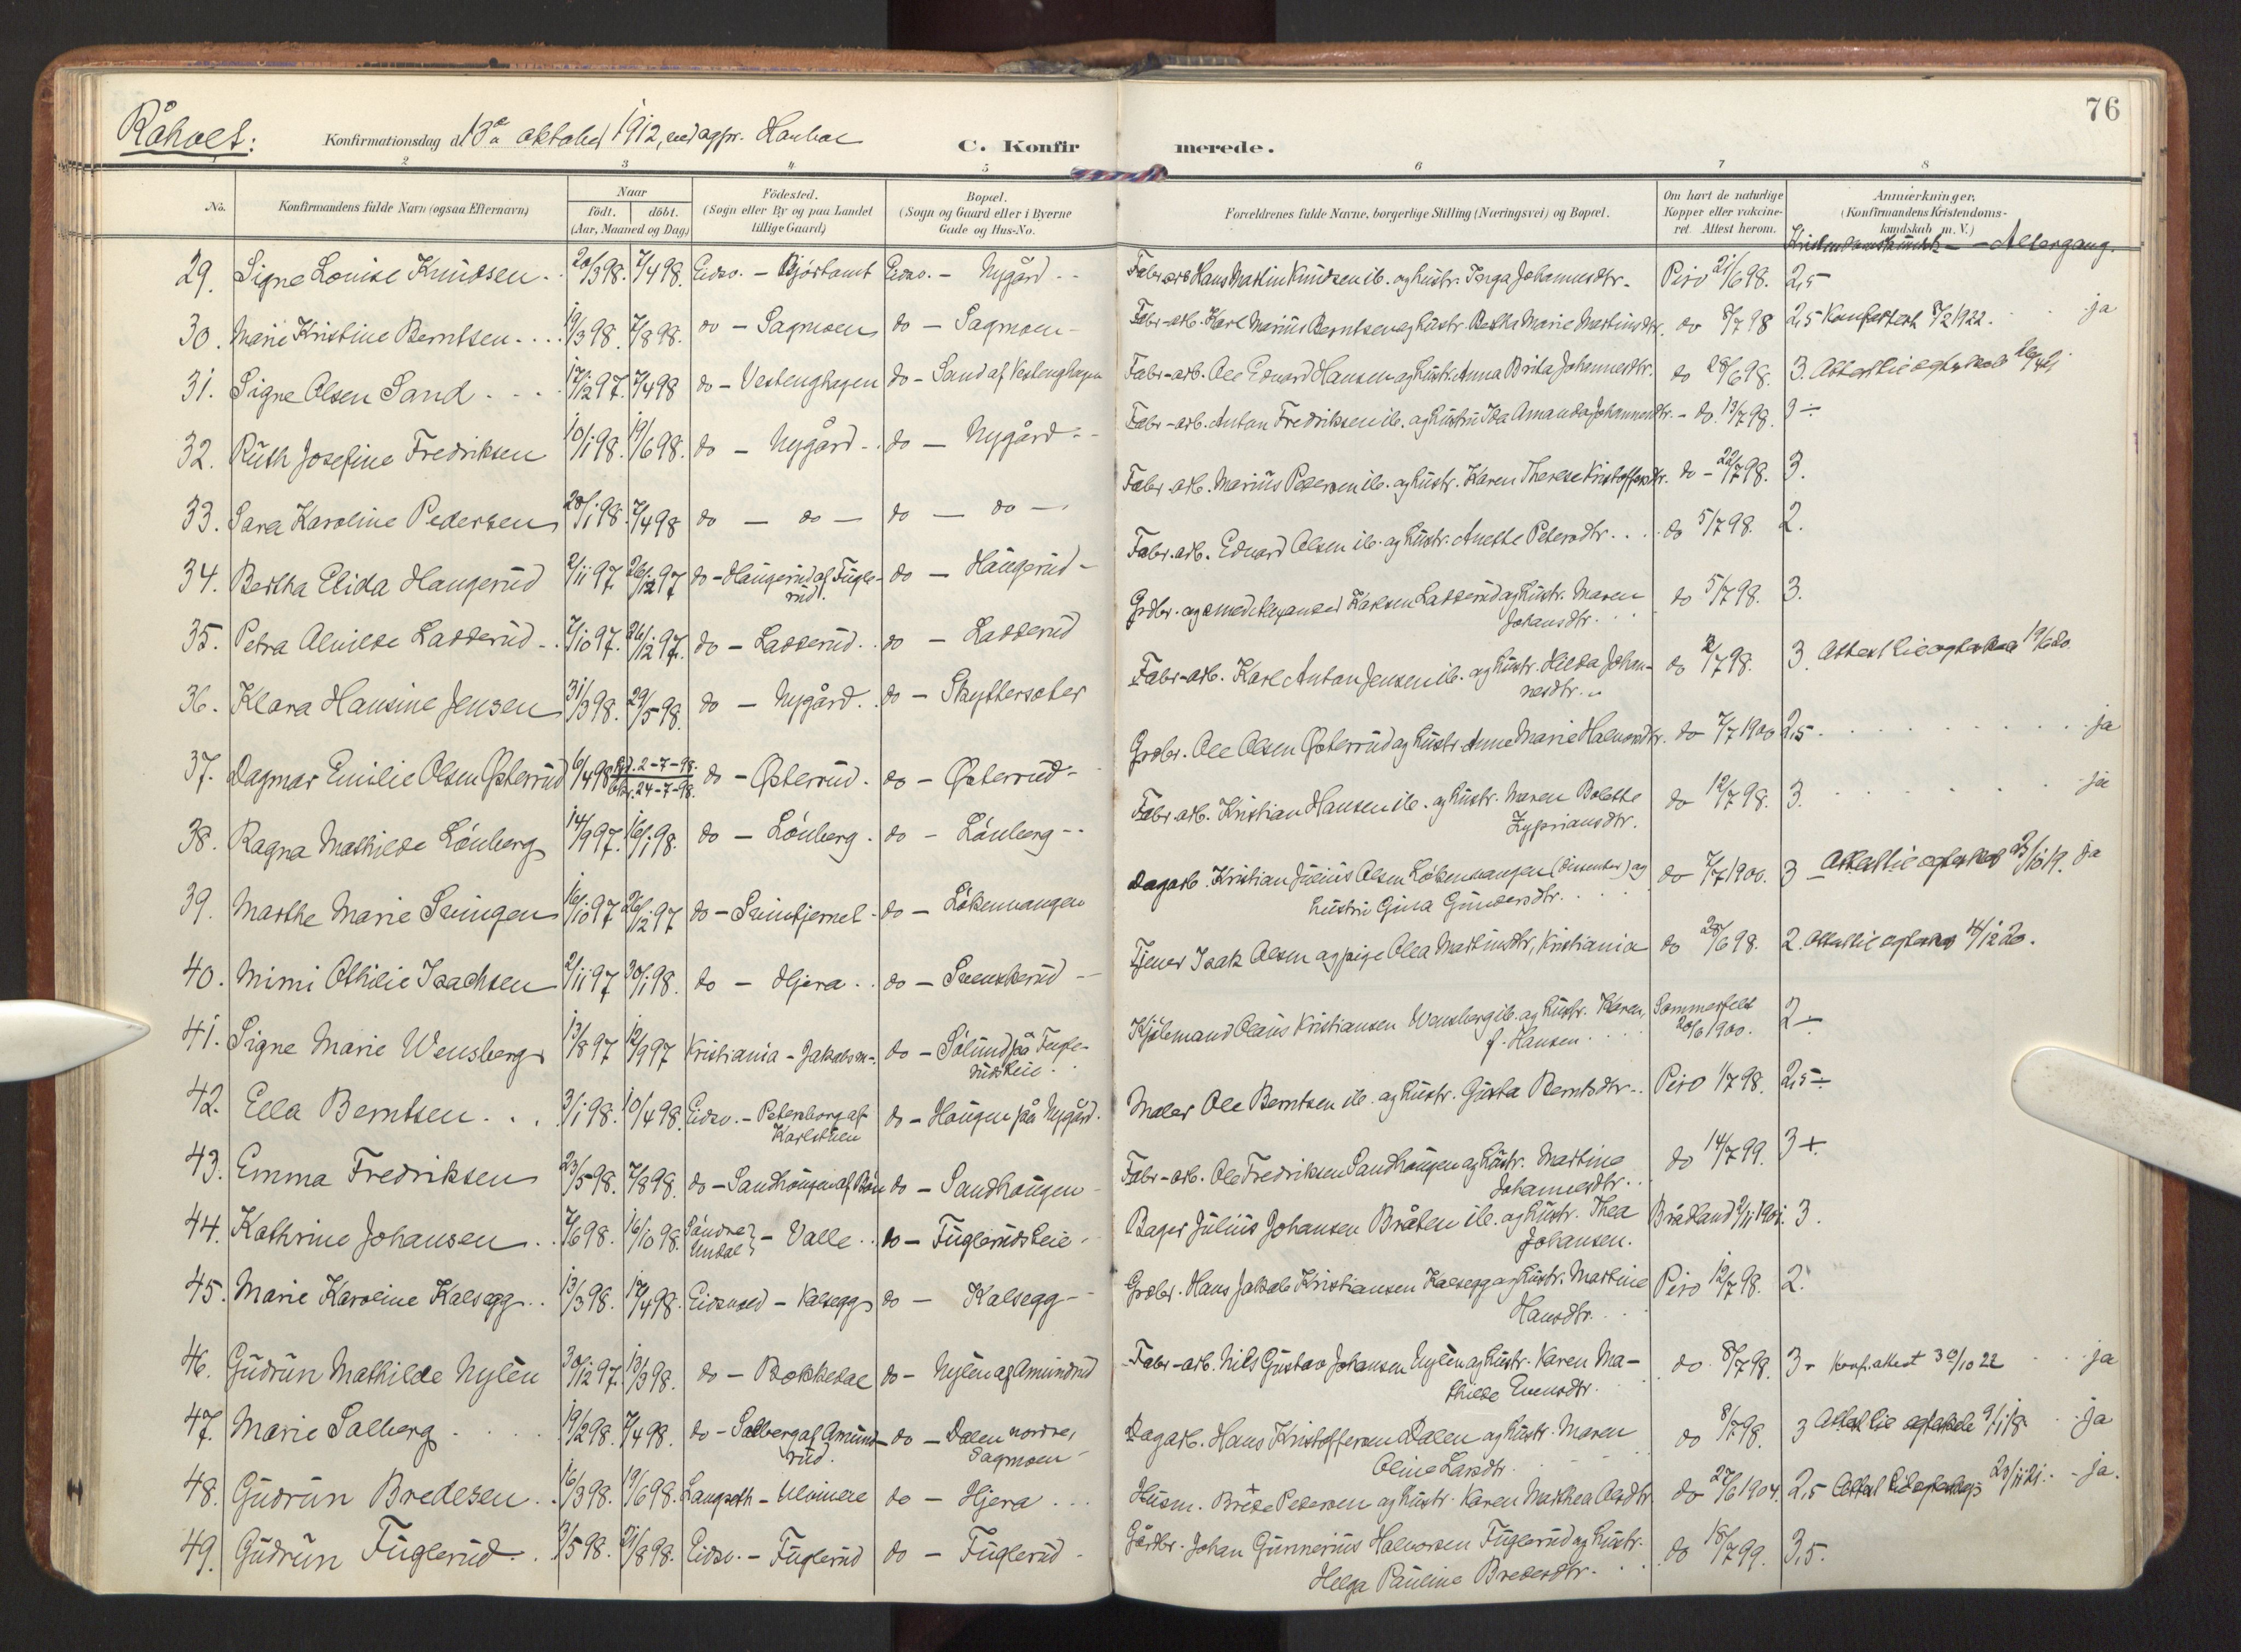 76
Råholt: Konfirmationsdag d. 13de oktober 1912, ved sgpr.
C. Konfirmerede.
1 2 3 4 5 6 7 8
No. Konfirmandens fulde Navn (ogsaa Efternavn) Naar Födested. Bopæl. Forældrenes fulde Navne, borgerlige Stilling (Næringsvei) og Bopæl. Om havt de naturlige Anmærkninger,
födt. döbt. (Sogn eller By og paa Landet (Sogn og Gaard eller i Byerne Kopper eller vakcine- (Konfirmandens Kristendoms-
(Aar, Maaned og Dag) tillige Gaard) Gade og Hus-No. ret. Attest herom. kundskab m. V.)
Kristendomskundsk. — Altergang.
29. Signe Louise Knudsen 20/3 98. 7/4 98. Eidsv. — Eidsv. — Nygård Fabr.arb Hans Martin Knudsen ib. og hustr. Inga Johannesdtr. Piro 21/6 98. 2,5
30. Marie Kristine Berntsen 19/3 98. 7/8 98. do — Sagmoen do — Sagmoen Fabr.-arb. Karl Marius Berntsen og hustr. Berthe Marie Martinsdtr. do 8/7 98 2,5 Konfattest 8/2 1922. ja
31. Signe Olsen Sand 17/12 97. 7/4 98 do — Vestenghagen do — Sand af Vestenghagen Fabr.-arb. Ole Edvard Hansen og hustr. Anna Brita Johannesdtr. do 28/6 98. 3. Attest til egteskab
32. Ruth Josefine Fredriksen 10/1 98. 19/6 98. do — Nygård do — Nygård Fabr.-arb. Anton Fredriksen ib. og hustru Ida Amanda Johannesdtr. do. 13/7 98. 3 ÷
33. Sara Karoline Pedersen 28/1 98. 7/4 98 do — do — do — do — Fabr.-arb. Marius Pedersen ib. og hustr. Karen Therese Kristoffersdtr. do — 22/7 98. 3.
34. Bertha Elida Haugerud 2/11 97. 26/12 97 do — Haugerud af Fugle- do — Haugerud Fabr.arb. Edvard Olsen ib. og hustr. Anette Petersdtr. do 5/7 98. 2.
rud.
35. Petra Alvilde Ladderud 7/10 97. 26/12 97. do — Ladderud. do — Ladderud Grdbr. og smed Alexander Karlsen Ladderud og hustr. Maren do 5/7 98. 3.
Johansdtr.
36. Klara Hansine Jensen 31/3 98. 29/5 98. do — Nygård. do — Skyttersæter Fabr-arb. Karl Anton Jensen ib. og hustr. Hilda Johan- do 2/7 98. 3. Attest til egteskab 19/6 20.
nesdtr.
37. Dagmar Emilie Olsen Østerud 6/4 98 Hjd. 2-7-98. do — Østerud. do — Østerud Grdbr. Ole Olsen Østerud og hustr. Anne Marie Halvorsdtr. do 7/7 1900 2,5 ja
24-7-98.
38. Ragna Mathilde Lönberg 14/9 97. 16/1 98. do — Lönberg. do — Lönberg Fabr.arb. Kristian Hansen ib. og hustr. Maren Bolette do 12/7 98. 3. ja
Zypriansdtr.
39. Marthe Marie Svingen 16/10 97 26/12 97 do — Svintjernet do — Løkenvangen Dagarb. Kristian Julius Olsen Løkenvangen (dissenter) og do 7/7 1900. 3 Attest til egteskab 23/10 19. ja
hustru Gina Gundersdtr.
40. Mimi Othilie Isachsen 2/11 97 30/1 98. do — Hjera do — Svenskerud Tjener Isak Olsen og pige Olea Martinsdtr, Kristiania do 28/6 98. 2. Attest til egteskab 14/12 20.
41. Signe Marie Wensberg 13/8 97 12/9 97 Kristiania — Jakobs m. do — Sölund på Fugle- Kjølemand Olaus Kristiansen Wensberg ib. og hustr. Karen, Sommerfelt 2 ÷
rudseie. f. Hansen. 20/6 1900.
42. Ella Berntsen 3/1 98. 10/4 98. Eidsv. — Petersborg af do — Haugen på Nygård. Maler Ole Berntsen ib. og hustr. Gusta Berntsdtr. Piro 1/7 98. 2,5 ÷
Karlstuen
43. Emma Fredriksen 23/5 98. 7/8 98. do — Sandhaugen af do — Sandhaugen Fabr-arb. Ole Fredriksen Sandhaugen og hustr. Martine do 14/7 99. 3 +.
Johannesdtr.
44. Kathrine Johansen 7/6 98. 16/10 98. Söndre Undal — Valle do — Fuglerudseie Bager Julius Johansen Bråten ib. og hustr. Thea Brådland 7/11 1901. 3.
Johansen.
45. Marie Karoline Kalsegg 13/3 98. 17/4 98. Eidsvold — Kalsegg do — Kalsegg Grdbr. Hans Jakob Kristiansen Kalsegg og hustr. Martine Piro 12/7 98. 2.
Hansdtr.
46. Gudrun Mathilde Nylén 30/12 97. 13/3 98. do — Bokkedal do — Nylén af Amundrud Fabr-arb. Nils Gustav Johansen Nylén og hustr. Karen Ma- do 8/7 98. 3 Konf.attest 30/10 22 ja
thilde Evensdtr.
47. Marie Solberg 19/2 98. 7/4 98. do — Solberg af Amund- do — Dalen nordre, Dagarb. Hans Kristoffersen Dalen og hustr. Maren do 8/7 98. 3 Attest til egteskab 9/1 18. ja
rud. Sagmoen Oline Larsdtr.
48. Gudrun Bredesen 16/3 98. 19/6 98. Langseth — Ulvinere do — Hjera Husm. Brede Pedersen og hustr. Karen Marthea Olsdtr. do 27/6 1904. 2,5 Attest til egteskap 23/11 21. ja.
49. Gudrun Fuglerud 2/5 98. 21/8 98. Eidsv. — Fuglerud do — Fuglerud Gårdbr. Johan Gunnerius Halvorsen Fuglerud og hustr. do 18/7 99. 3,5.
Helga Pauline Bredesdtr.